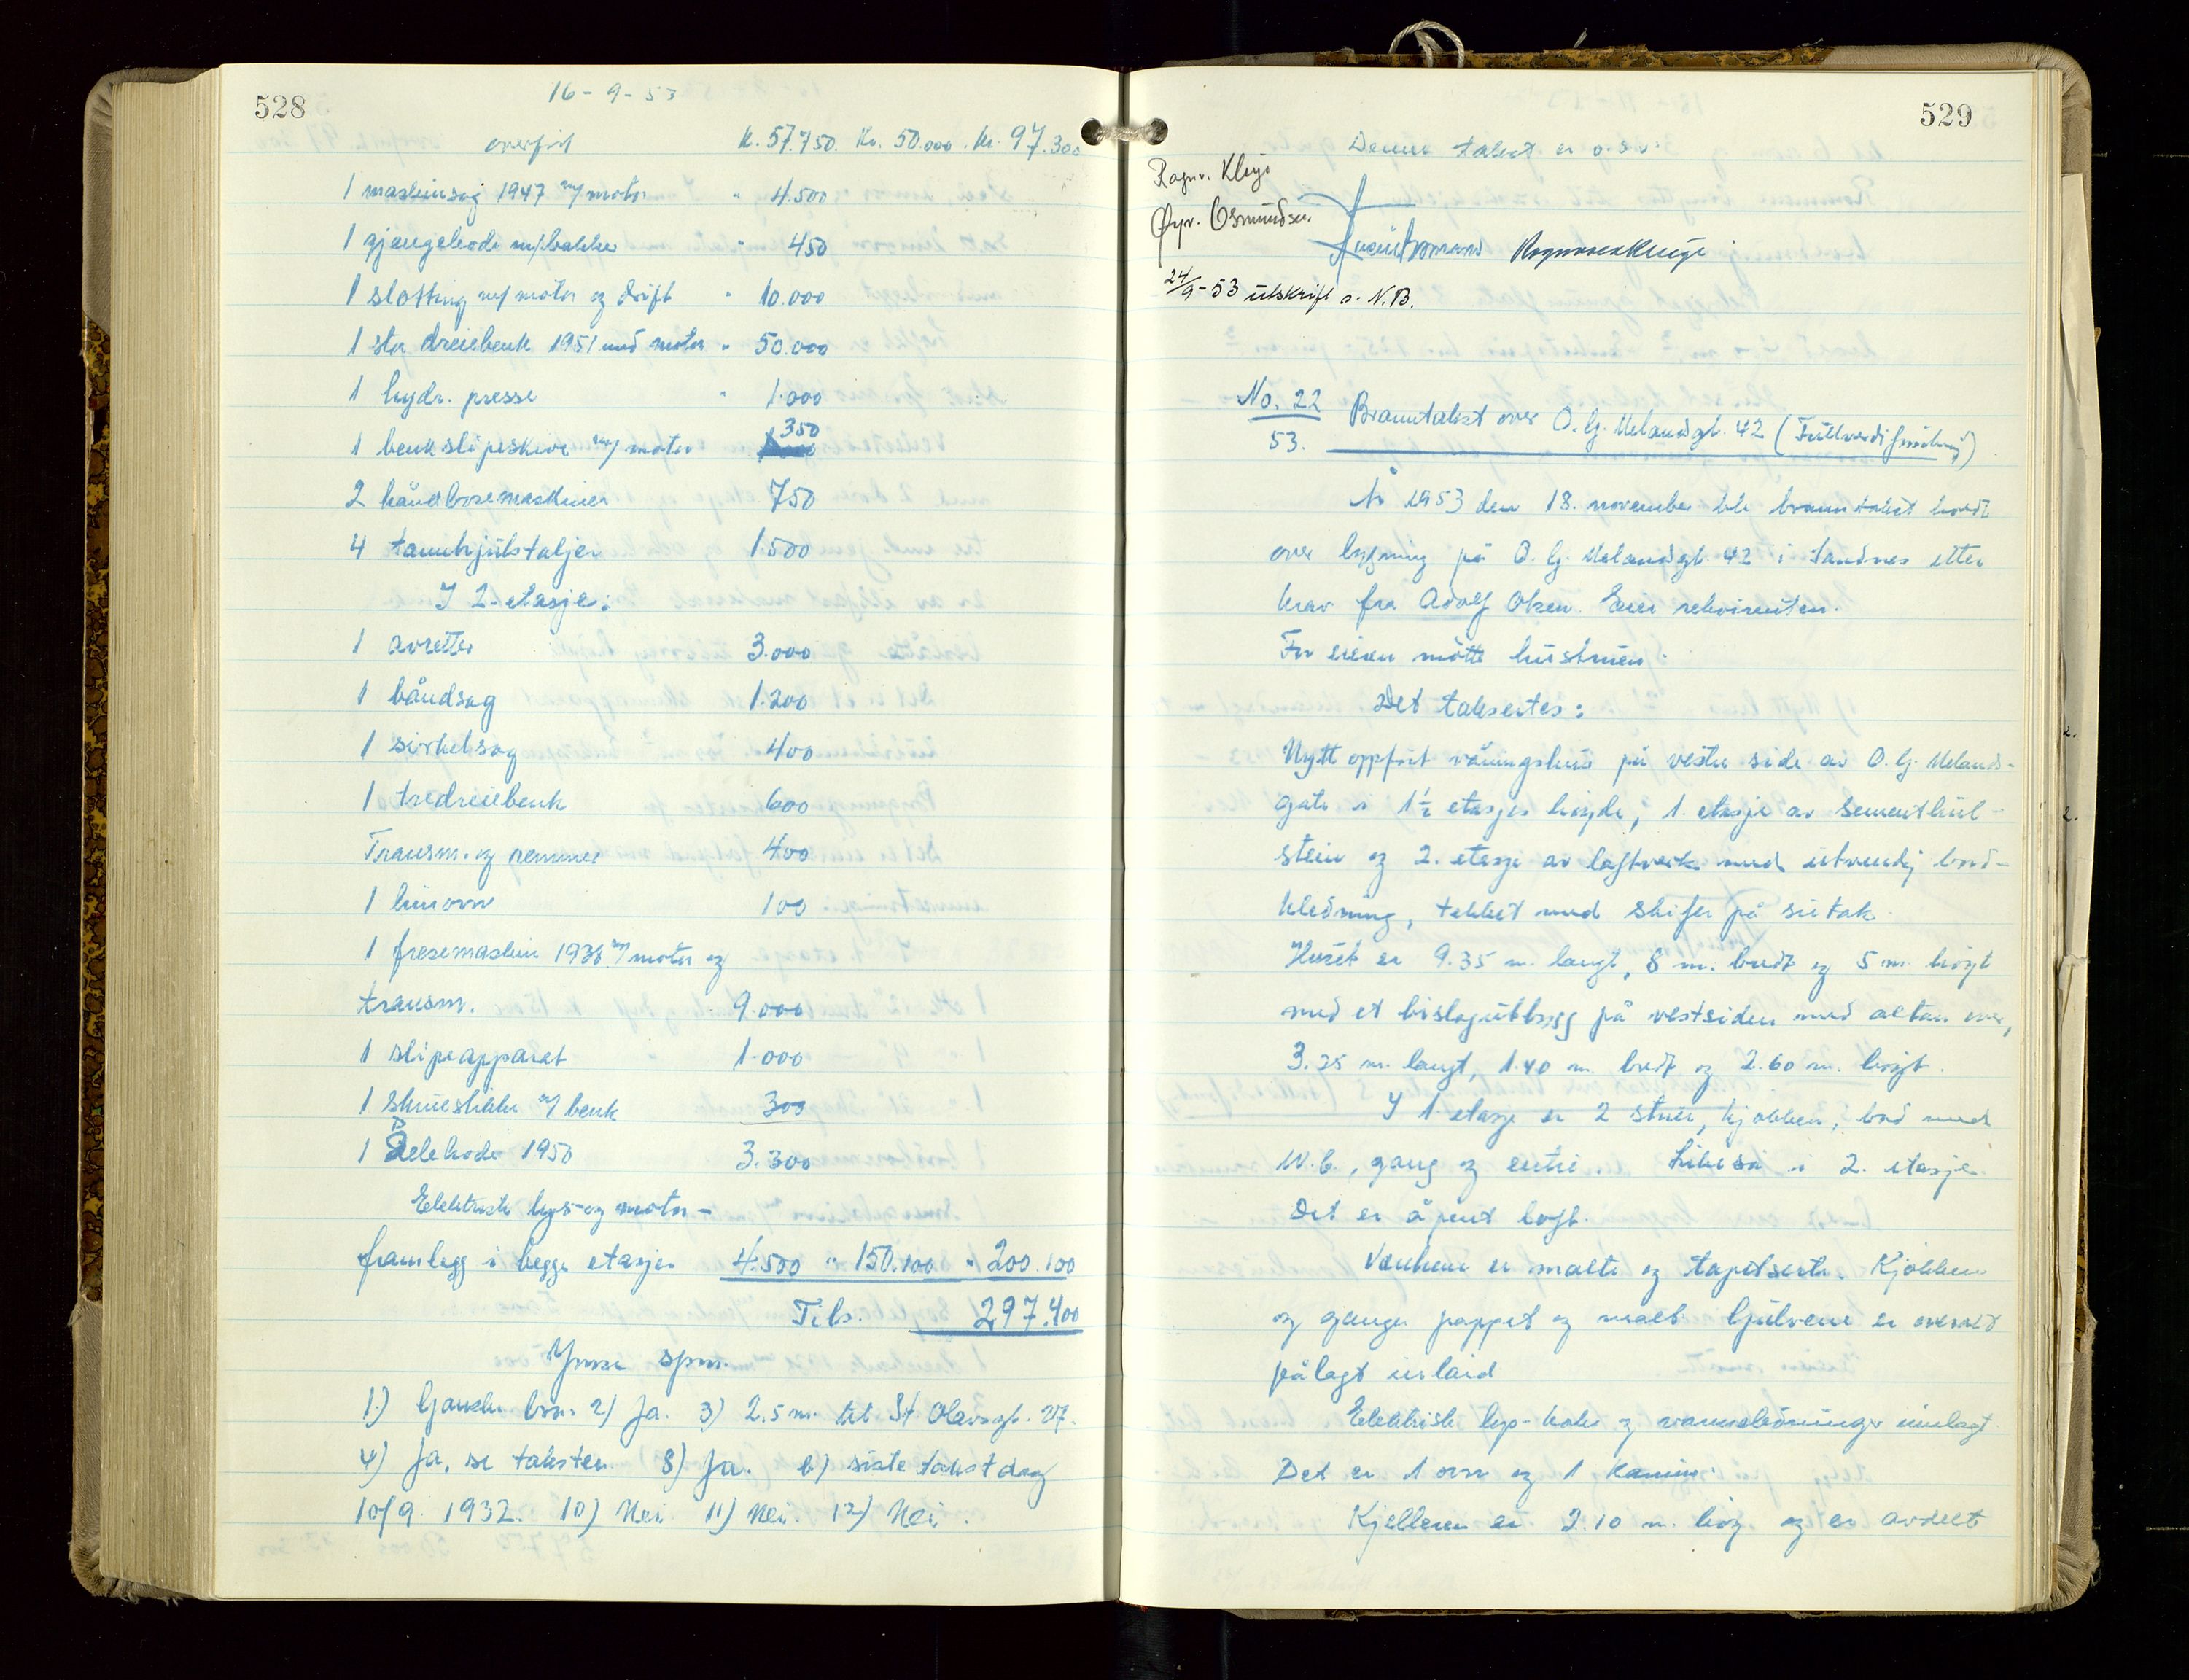 528
16-9-53
overført K. 57.750. Kr. 50.000. Kr. 97.300
1 maskinsag 1947 m/motor " 4.500
1 gjengekode m/bakker " 450
1 slotting m/motor og drift " 10.000
1 stor dreiebenk 1951 med motor " 50.000
1 hydr. presse " 1.000
1 benkslipeskive m/motor 350
2 håndboremaskiner 750
4 tannhjulstaljer 1.500
I 2. etasje:
1 avretter 3.000
1 båndsag 1.200
1 sirkelsag 400
1 tredreiebenk 600
Transm. og remmer 400
1 limovn 100
1 fresemaskin 1938 m/motor og
transm. 9.000
1 slipeapparat 1.000
1 skruestikke m/benk 300
1 Delehode 1950 3.300
Elektrisk lys- og motor-
framlegg i begge etasjer 4.500 " 150.100 " 200.100
Tils. 297.400
Ymse spm.
1) Ganske bra. 2) Ja. 3) 2.5 m. til St. Olavsgt. 27.
4) Ja, se taksten 8) Ja. 6) siste takstdag
10/9. 1932. 10) Nei 11) Nei. 12) Nei.
529
Denne takst er o.s.v.
Ragnv. Kluge
Øyv. Osmundsen.
Ragnvald Kluge
24/9-53 utskrift s. N.B.
No. 22
53.
Branntakst over O. G. Melandsgt. 42 (Fullverdiforsikring)
År 1953 den 18. november ble branntakst holdt
over bygning på O. G. Melandsgt. 42 i Sandnes etter
krav fra Adolf Olsen. Eier rekvirenten.
For eieren møtte hustruen.
Det takseres:
Nytt oppført våningshus på vestre side av O. G. Melands-
gate i 1½ etasjes høyde, 1. etasje av sementhul-
stein og 2. etasje av laftverk med utvendig bord-
kledning, tekket med skifer på sutak.
Huset er 9.35 m. langt, 8 m. bredt og 5 m. høyt
med et bislagutbygg på vestsiden med altan over,
3.25 m. langt, 1.40 m. bredt og 2.60 m. høyt.
I 1. etasje er 2 stuer, kjøkken, bad med
W.C., gang og entré. Likeså i 2. etasje.
Det er åpent loft.
Værelsene er malte og tapetserte. Kjøkken
og ganger pappet og malt. Gulvene er overalt
pålagt inlaid
Elektrisk lys- koke og varmeledninger innlagt.
Det er 1 ovn og 1 kamin.
Kjelleren er 2.10 m. høy og er avdelt